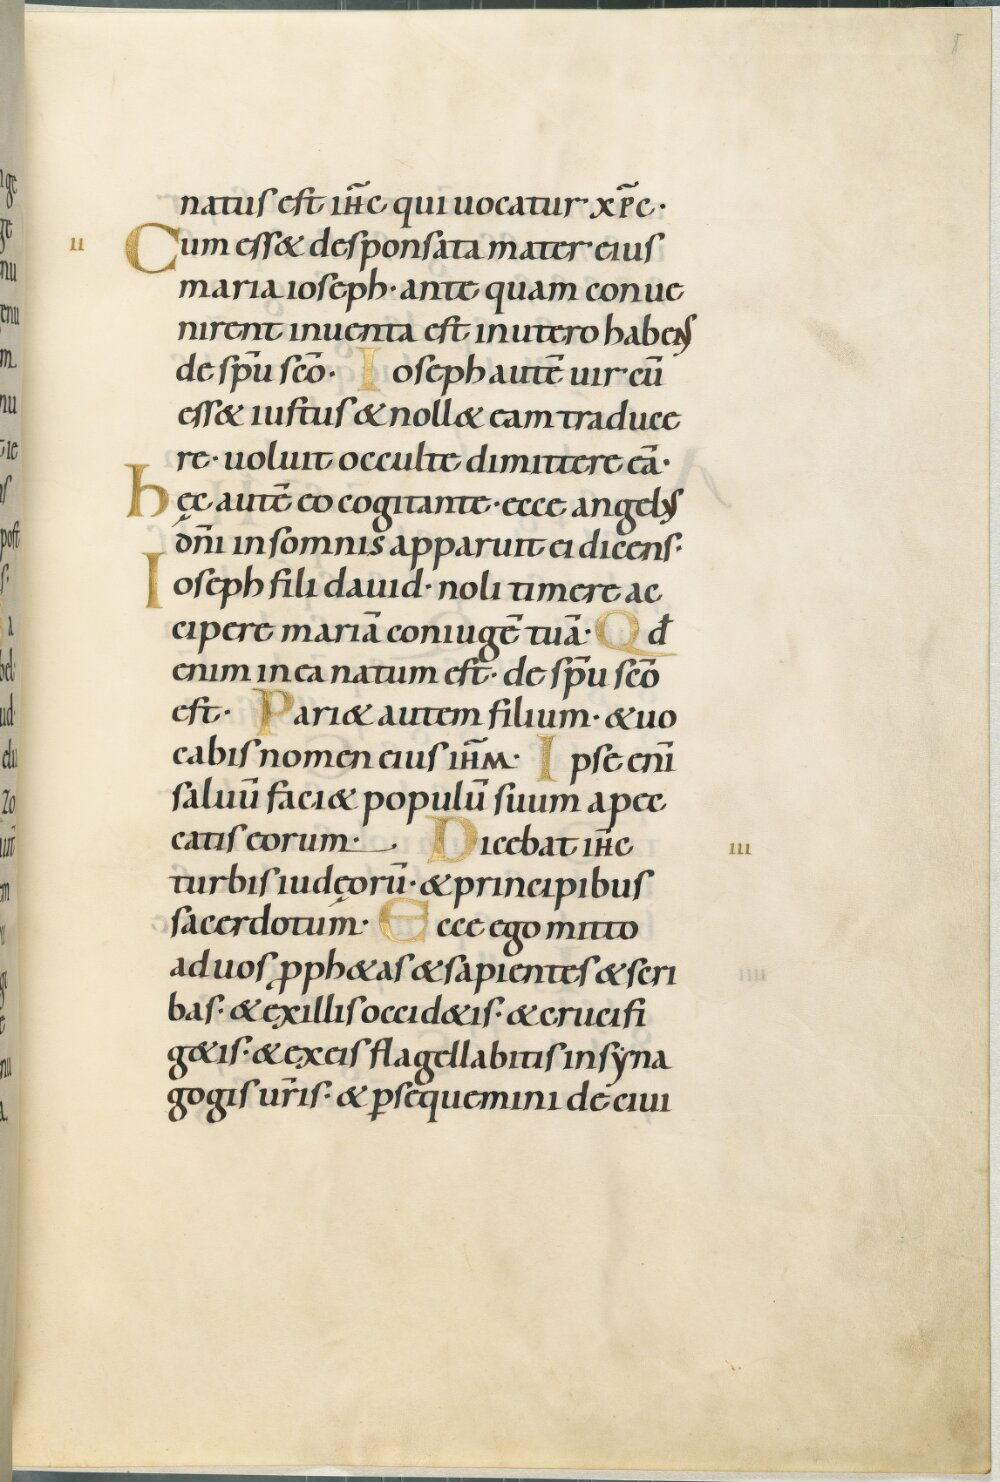 8
natus est ih̅c qui uocatur xp̅c·
ii Cum ess& desponsata mater eius
maria ioseph· ante quam conue
nirent inuenta est in utero habens
de sp̅u sc̅o· Ioseph aute̅ uir eu̅
ess& iustus & noll& eam traduce
re· uoluit occulte dimittere ea̅·
hęc aute̅ eo cogitante· ecce angelus
dn̅i in somnis apparuit ei dicens·
Ioseph fili dauid· noli timere ac
cipere maria̅ coniuge̅ tua̅· Qd̅
enim in ea natum est· de sp̅u sc̅o
est· Pari& autem filium· & uo
cabis nomen eius ih̅m· Ipse eni̅
saluu̅ faci& populu̅ suum a pec
catis eorum· Dicebat ih̅c iii
turbis iudęoru̅· & principibus
sacerdotum· Ecce ego mitto
ad uos ꝓph&as & sapientes & scri
bas· & ex illis occid&is· & crucifi
g&is· & ex eis flagellabitis in syna
gogis ur̅is· & ꝑsequemini de ciui